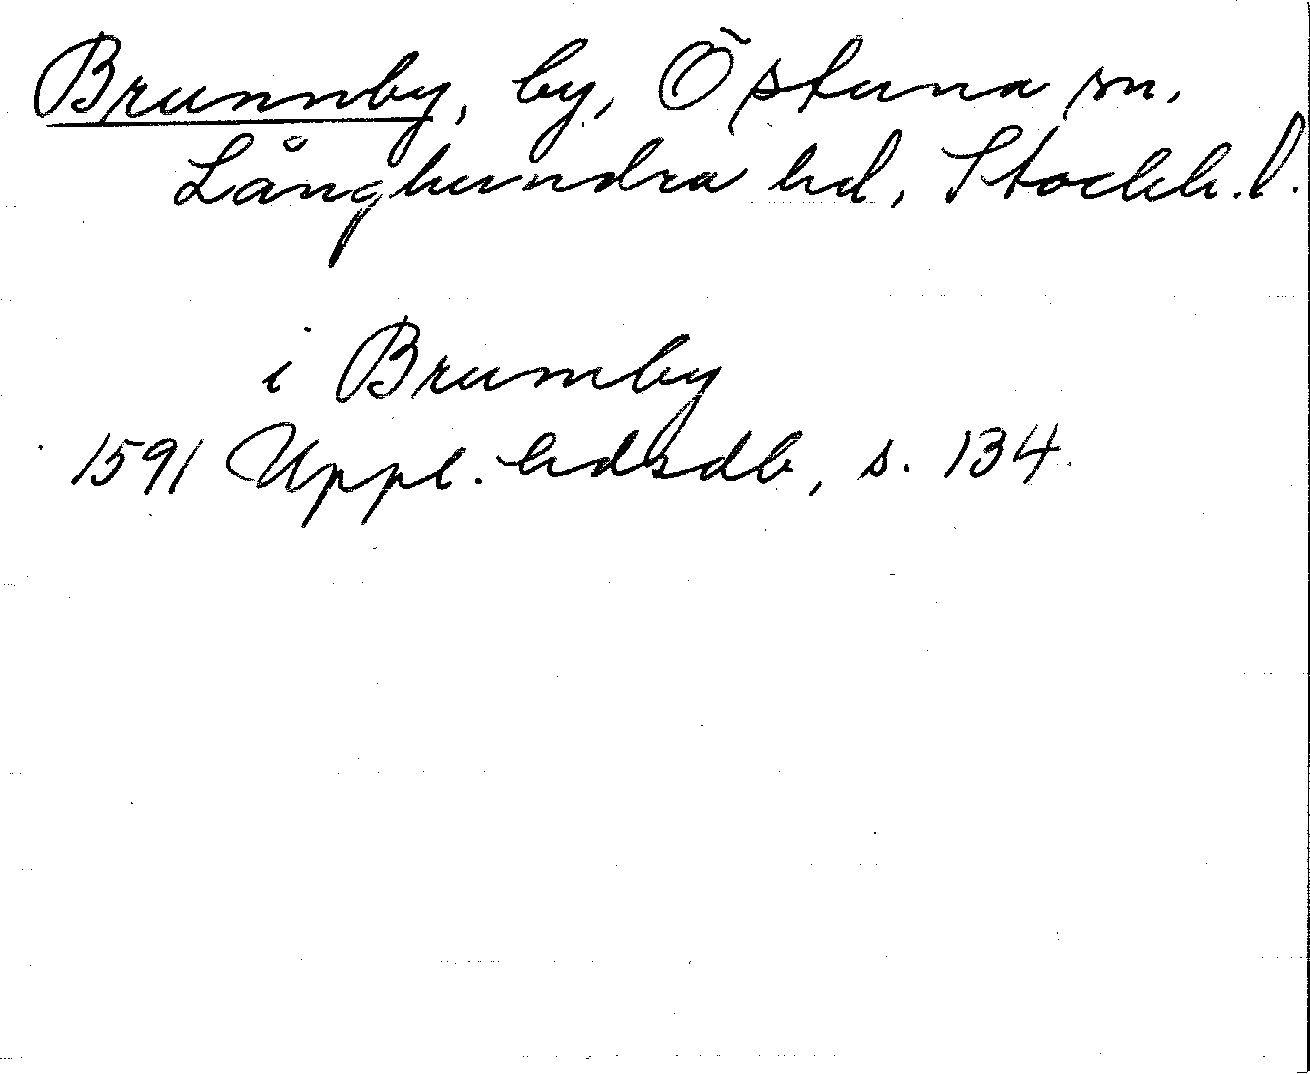 Brunnby, by, Östuna sn.
Långhundra hd, Stockh. l.
i Brumby
1591 Uppl. hdsdb, s. 134.